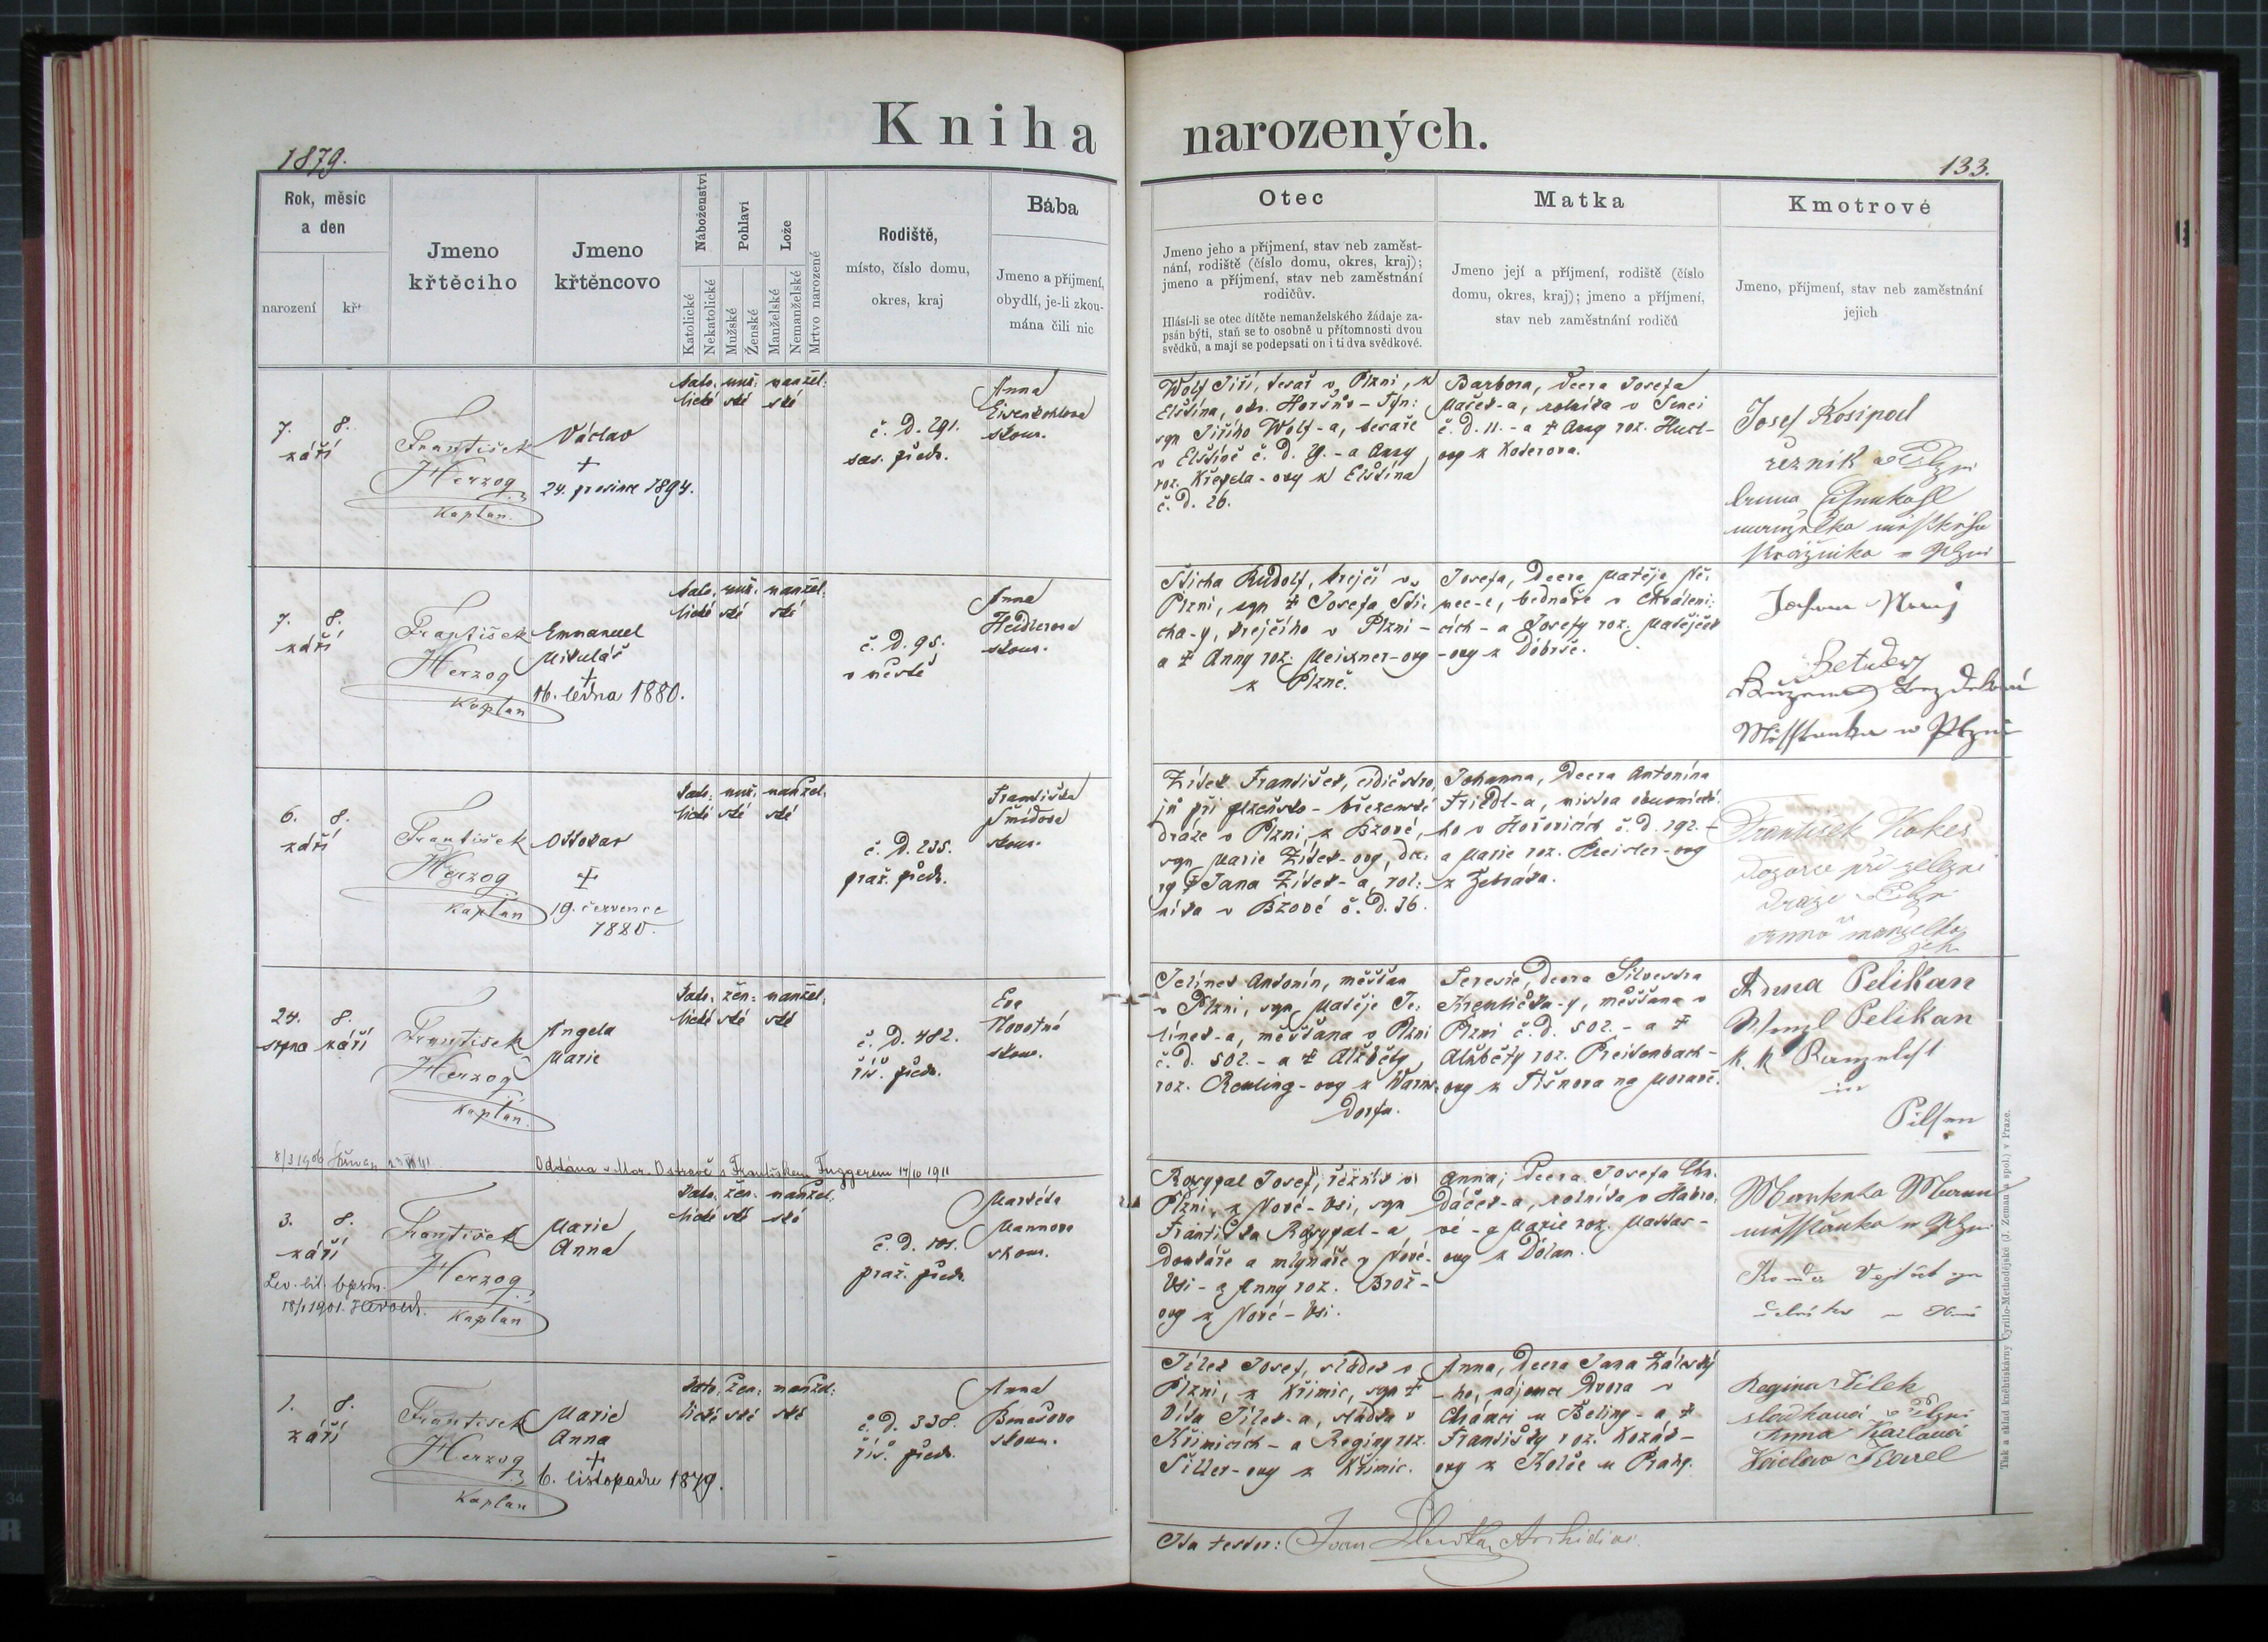 Kniha narozených.
1879.
133.
Rok, měsíc
a den
narození
křt
Jmeno
křtěcího
Jmeno
křtěncovo
Náboženství
Katolické
Nekatolické
Pohlaví
Mužské
Ženské
Lože
Manželské
Nemanželské
Mrtvo narozené
Rodiště,
místo, číslo domu,
okres, kraj
Bába
Jmeno a příjmení,
obydlí, je-li zkou-
mána čili nic
Otec
Jmeno jeho a příjmení, stav neb zaměst-
nání, rodiště (číslo domu, okres, kraj);
jmeno a příjmení, stav neb zaměstnání
rodičův.
Hlásí-li se otec dítěte nemanželského žádaje za-
psán býti, staň se to osobně u přítomnosti dvou
svědků, a mají se podepsati on i ti dva svědkové.
Matka
Jmeno její a příjmení, rodiště (číslo
domu, okres, kraj); jmeno a příjmení,
stav neb zaměstnání rodičů
Kmotrové
Jmeno, příjmení, stav neb zaměstnání
jejich
7. 8.
září
František
Herzog
kaplan
Václav
+
24. prosince 1894.
kato: muž: manžel:
lické ské ské
č. D. 291.
sas. předm.
Anna
Eisenkohlova
zkoum.
Wolf Jiří, tesař v Plzni, z
Elštína, okr. Horšův-Týn:
syn Jiřího Wolf-a, tesaře
v Elštíně č. D. 29. - a Anny
roz. Křepela-ovy z Elštína
č. D. 26.
Barbora, dcera Josefa
Mašek-a, rolníka v Senci
č. D. 11. - a † Anny roz. Hucl-
ovy z Koterova.
Josef Rosipal
řezník v Plzni
7. 8.
září
František
Herzog
kaplan
Emmanuel
Mikuláš
+
16. ledna 1880.
kato: muž: manžel:
lické ské ské
č. D. 95.
v městě
Anna
Heidlerova
zkoum.
Sticha Rudolf, krejčí v
Plzni, syn † Josefa Sti:
cha-y, krejčího v Plzni -
a † Anny roz. Meixner-ovy
z Plzně.
Josefa, dcera Matěje Ně:
mec-e, bednáře v Chválení:
cích - a Josefy roz. Matějček
-ovy z Dobrše.
Měšťanka w Plzni
6. 8.
září
František
Herzog
kaplan
Ottokar
+
19. července
1880.
kato: muž: manžel:
lické ské ské
č. D. 235.
praž. předm.
Františka
Šmídova
zkoum.
Žídek František, cidič stro
jů při plzeňsko-březenské
dráze v Plzni z Bzové,
syn Marie Žídek-ovy, dce:
ry † Jana Žídek-a, rol:
níka v Bzové č. D. 36.
Johanna, dcera Antonína
Friedl-a, mistra obuvnické:
ho v Hořovicích č. D. 192. -
a Marie roz. Preisler-ovy
z Žebráka.
František Kokeš
Dozorce při železni
dráze v Plzni
Anna manželka
jeho
24. 8.
srpna září
František
Herzog
kaplan
Angela
Marie
kato: žen: manžel:
lické ské ské
č. D. 482.
říš. předm.
Eva
Novotná
zkoum.
Jelínek Antonín, měšťan
v Plzni, syn Matěje Je:
línek-a, měšťana v Plzni
č. D. 502. - a † Alžběty,
roz. Reuling-ovy z Warns
dorfu.
Terezie, dcera Silvestra
Kreplička-y, měšťana v
Plzni č. D. 502. - a †
Alžběty roz. Preitenbach-
ovy z Tišnova na Moravě.
Anna Pelikan
Wenzl Pelikan
k. k.
in
Pilsen
Oddána v Mor. Ostravě s Františkem Fuggerem 17/10 1911
3. 8.
září
František
Herzog
kaplan
Marie
Anna
kato: žen: manžel:
lické ské ské
č. D. 101.
praž. předm.
Markéta
Mannova
zkoum.
Rosypal Josef, řezník v
Plzni, z Nové-Vsi, syn
Františka Rosypal-a
domkáře a mlynáře v Nové-
Vsi - a Anny roz. Brož-
ovy z Nové-Vsi.
Anna, dcera Josefa Chu
dáček-a, rolníka v Habro:
vé - a Marie roz. Mattas-
ovy z Dolan.
1. 8.
září
František
Herzog
kaplan
Marie
Anna
+
6. listopadu 1879.
kato: žen: manžel:
lické ské ské
č. D. 338.
říš. předm.
Anna
Benešova
zkoum.
Jílek Josef, sládek v
Plzni, z Křimic, syn †
Víta Jílek-a, sládka v
Křimicích - a Reginy roz.
Siller-ovy z Křimic.
Anna, dcera Jana Záleský
-ho, nájemce dvora v
Chomci u Beling - a †
Františky roz. Kozák-
ovy z Kolče u Prahy.
Regina Jílek
sladková v Plzni
Anna Karlová
Václav Karel
Ita testor:
Tisk a sklad kněhtiskárny Cyrillo-Methodějské (J. Zeman a spol.) v Praze.